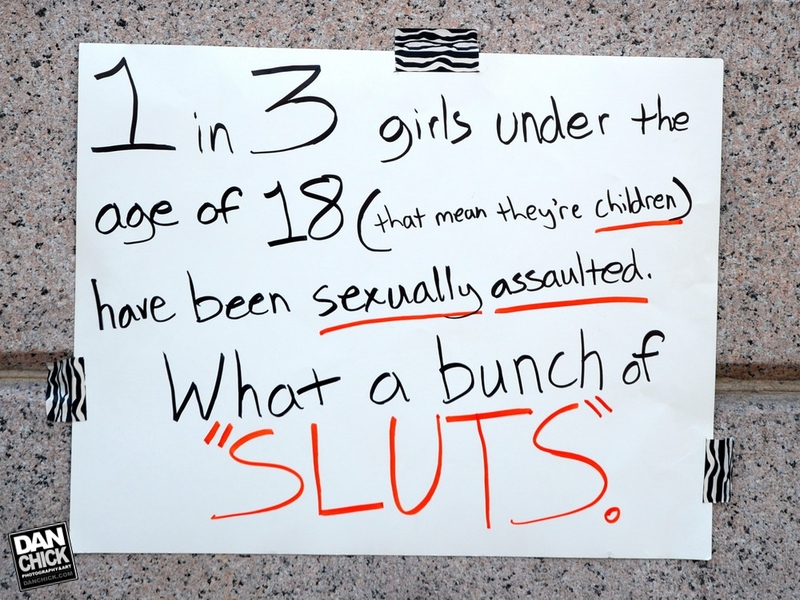 1 in 3 girls under the
age of 18 (that mean they're children)
have been sexually assaulted.
What a bunch of
"SLUTS".
DAN
CHICK
PHOTOGRAPHY&ART
DANCHICK.COM